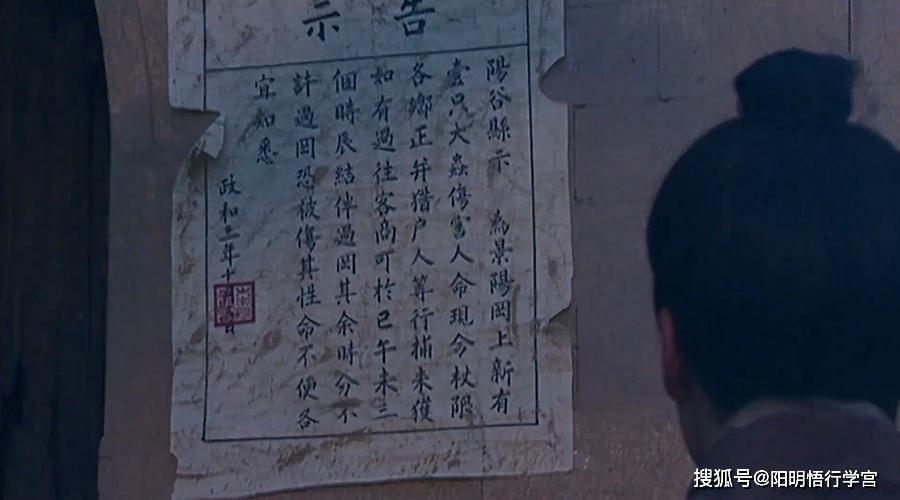 告示
陽谷縣示 為景陽岡上新有
壹只大蟲傷害人命現今杖限
各鄉正并猎户人等行捕未獲
如有過往客商可於巳午未三
個時辰結伴過岡其余時分不
許過岡恐被傷其性命不便各
宜知悉
政和三年十月日
搜狐号@阳明悟行学宫